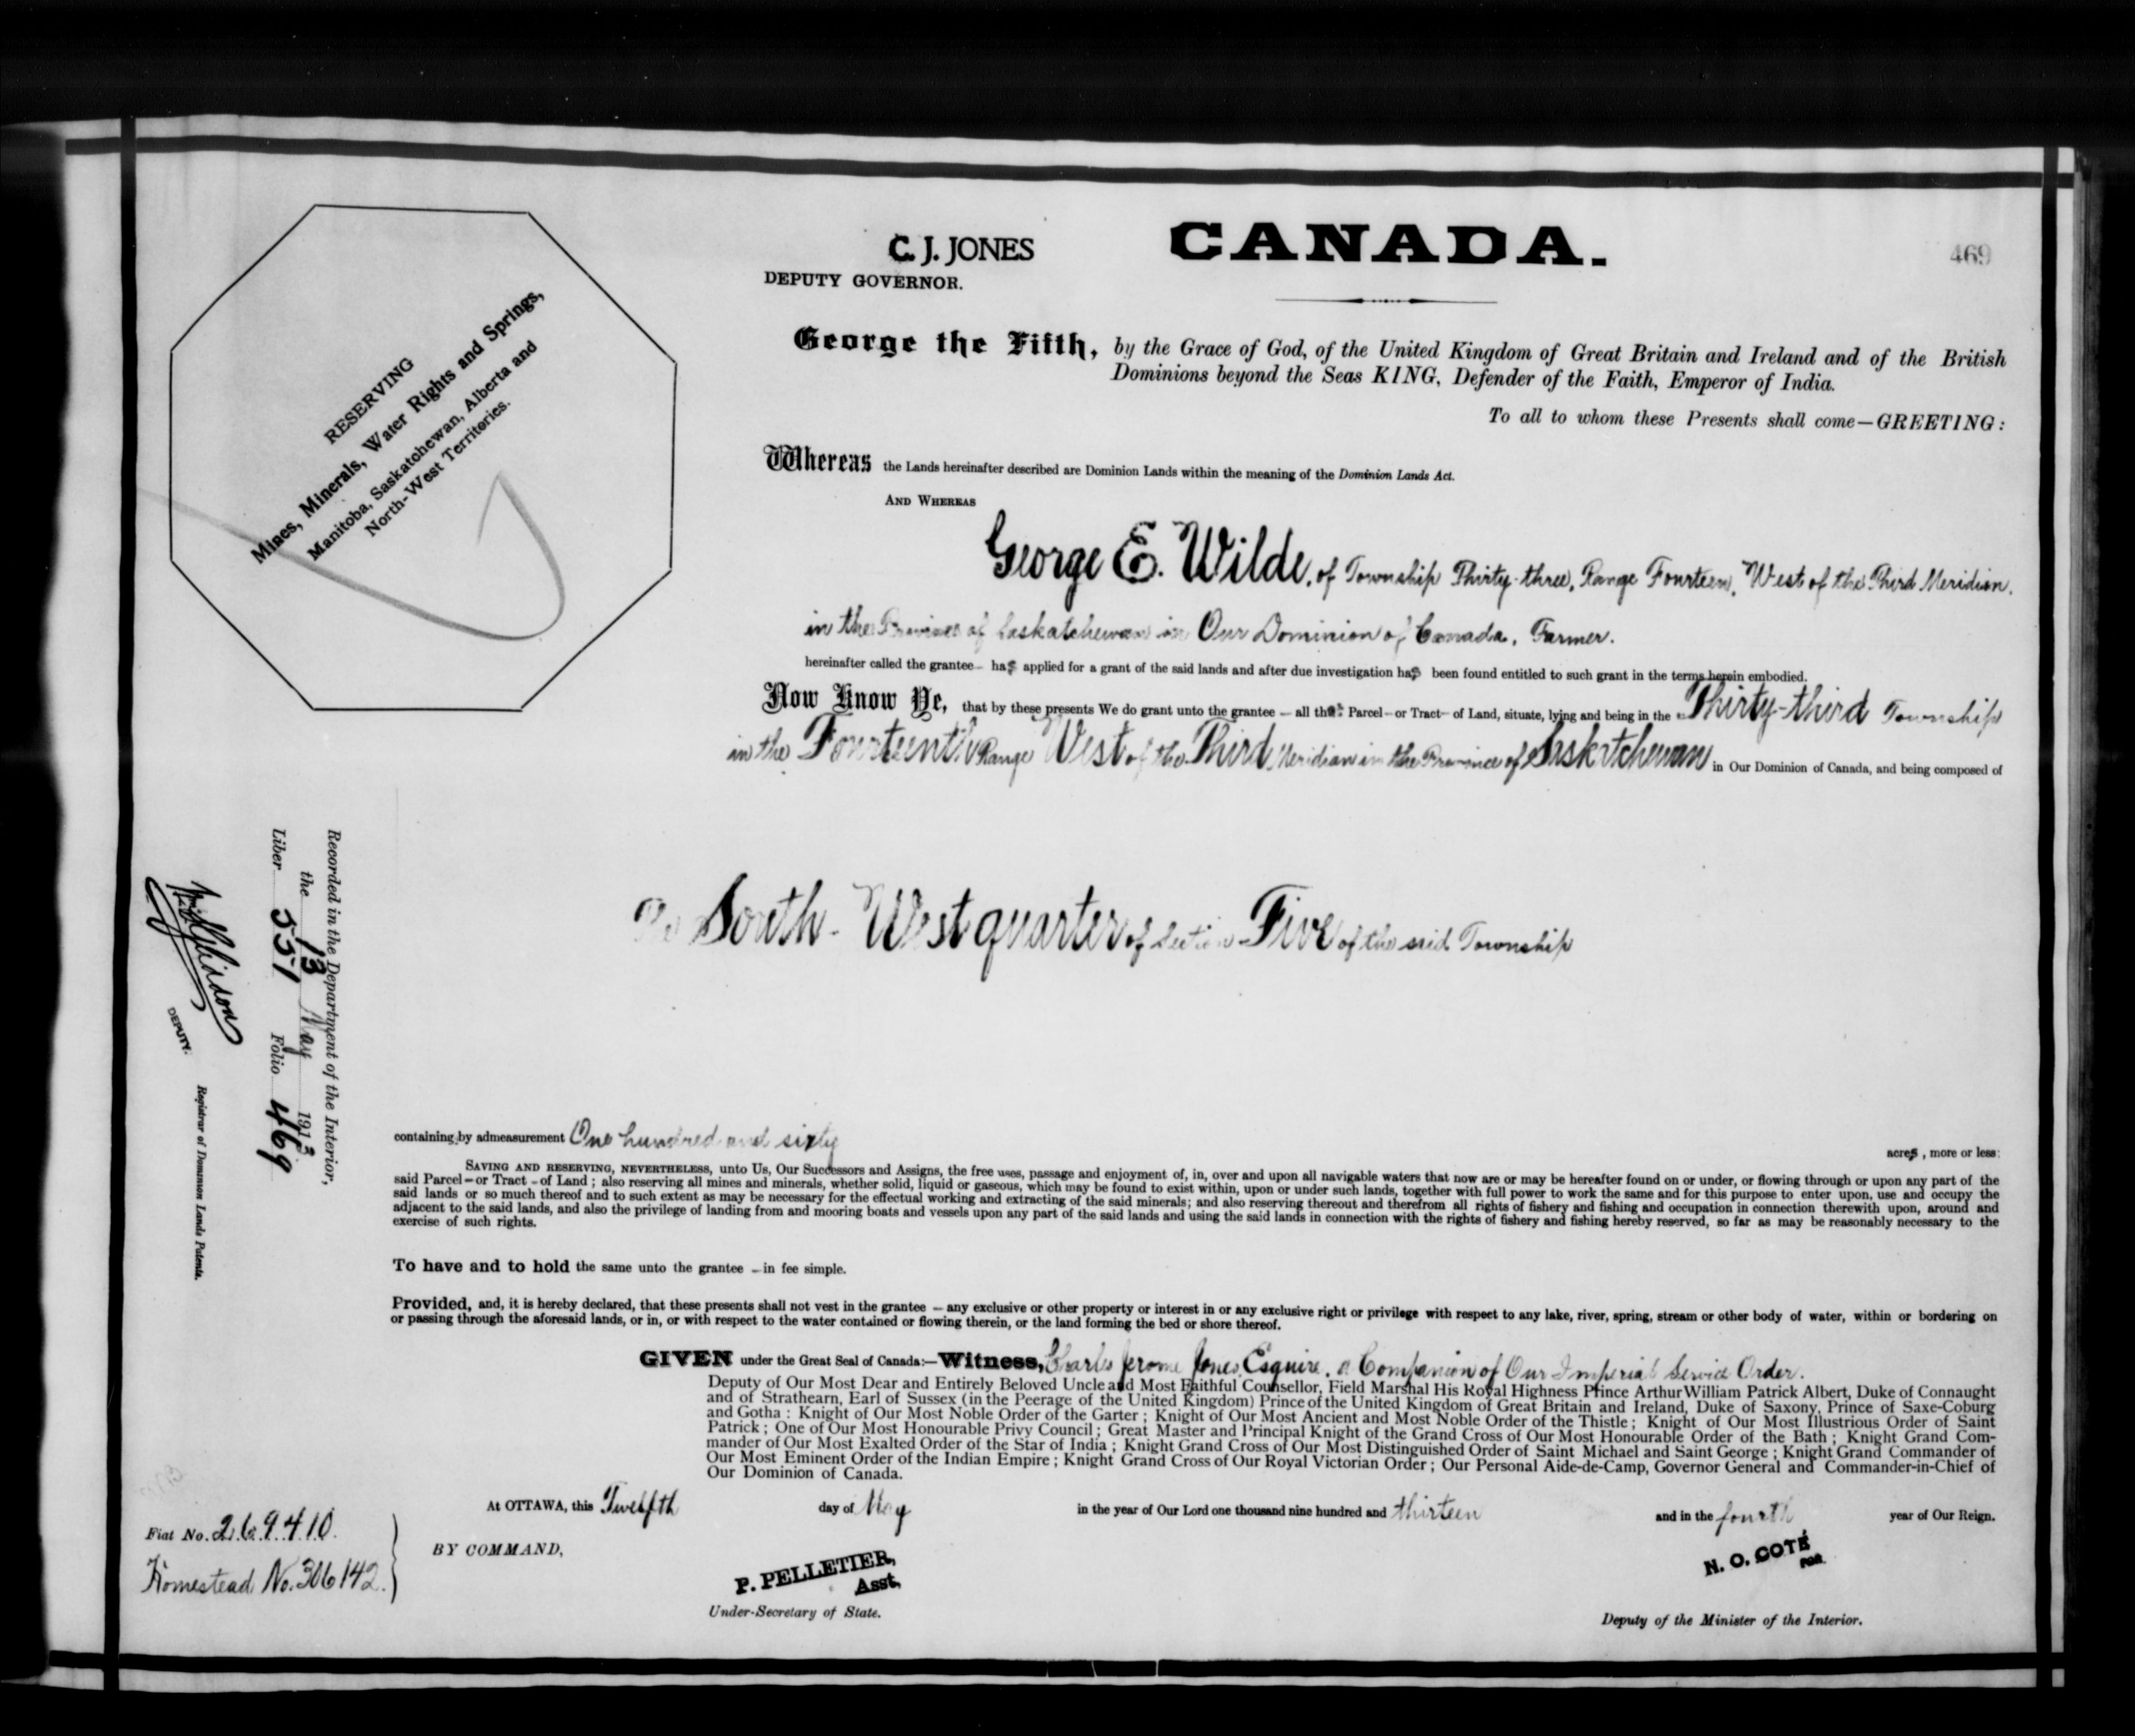 C. J. JONES
DEPUTY GOVERNOR.
CANADA.
469
RESERVING
Mines, Minerals, Water Rights and Springs,
Manitoba, Saskatchewan, Alberta and
North-West Territories.
George the Fifth, by the Grace of God, of the United Kingdom of Great Britain and Ireland and of the British
Dominions beyond the Seas KING, Defender of the Faith, Emperor of India.
To all to whom these Presents shall come—GREETING:
Whereas the Lands hereinafter described are Dominion Lands within the meaning of the Dominion Lands Act.
AND WHEREAS
George E. Wilde, of Township Thirty-three, Range Fourteen, West of the Third Meridian.
in the Province of Saskatchewan in Our Dominion of Canada, Farmer.
hereinafter called the grantee – has applied for a grant of the said lands and after due investigation has been found entitled to such grant in the terms herein embodied.
Now Know Ye, that by these presents We do grant unto the grantee – all that Parcel – or Tract – of Land, situate, lying and being in the Thirty-third Township
in the Fourteenth Range West of the Third Meridian in the Province of Saskatchewan in Our Dominion of Canada, and being composed of
The South-West quarter of Section Five of the said Township
containing by admeasurement One hundred and sixty acres, more or less:
SAVING AND RESERVING, NEVERTHELESS, unto Us, Our Successors and Assigns, the free uses, passage and enjoyment of, in, over and upon all navigable waters that now are or may be hereafter found on or under, or flowing through or upon any part of the
said Parcel – or Tract – of Land ; also reserving all mines and minerals, whether solid, liquid or gaseous, which may be found to exist within, upon or under such lands, together with full power to work the same and for this purpose to enter upon, use and occupy the
said lands or so much thereof and to such extent as may be necessary for the effectual working and extracting of the said minerals; and also reserving thereout and therefrom all rights of fishery and fishing and occupation in connection therewith upon, around and
adjacent to the said lands, and also the privilege of landing from and mooring boats and vessels upon any part of the said lands and using the said lands in connection with the rights of fishery and fishing hereby reserved, so far as may be reasonably necessary to the
exercise of such rights.
To have and to hold the same unto the grantee – in fee simple.
Provided, and, it is hereby declared, that these presents shall not vest in the grantee – any exclusive or other property or interest in or any exclusive right or privilege with respect to any lake, river, spring, stream or other body of water, within or bordering on
or passing through the aforesaid lands, or in, or with respect to the water contained or flowing therein, or the land forming the bed or shore thereof.
GIVEN under the Great Seal of Canada:—Witness, Charles Jerome Jones, Esquire, a Companion of Our Imperial Service Order.
Deputy of Our Most Dear and Entirely Beloved Uncle and Most Faithful Counsellor, Field Marshal His Royal Highness Prince Arthur William Patrick Albert, Duke of Connaught
and of Strathearn, Earl of Sussex (in the Peerage of the United Kingdom) Prince of the United Kingdom of Great Britain and Ireland, Duke of Saxony, Prince of Saxe-Coburg
and Gotha : Knight of Our Most Noble Order of the Garter ; Knight of Our Most Ancient and Most Noble Order of the Thistle ; Knight of Our Most Illustrious Order of Saint
Patrick ; One of Our Most Honourable Privy Council ; Great Master and Principal Knight of the Grand Cross of Our Most Honourable Order of the Bath ; Knight Grand Com-
mander of Our Most Exalted Order of the Star of India ; Knight Grand Cross of Our Most Distinguished Order of Saint Michael and Saint George ; Knight Grand Commander of
Our Most Eminent Order of the Indian Empire ; Knight Grand Cross of Our Royal Victorian Order ; Our Personal Aide-de-Camp, Governor General and Commander-in-Chief of
Our Dominion of Canada.
At OTTAWA, this Twelfth day of May in the year of Our Lord one thousand nine hundred and thirteen and in the fourth year of Our Reign.
BY COMMAND,
P. PELLETIER,
Asst.
Under-Secretary of State.
N. O. COTÉ
FOR
Deputy of the Minister of the Interior.
Fiat No. 269410.
Homestead No. 306142.
Recorded in the Department of the Interior,
the 13 May 1913
Liber 551 Folio 469
DEPUTY.
Registrar of Dominion Lands Patents.